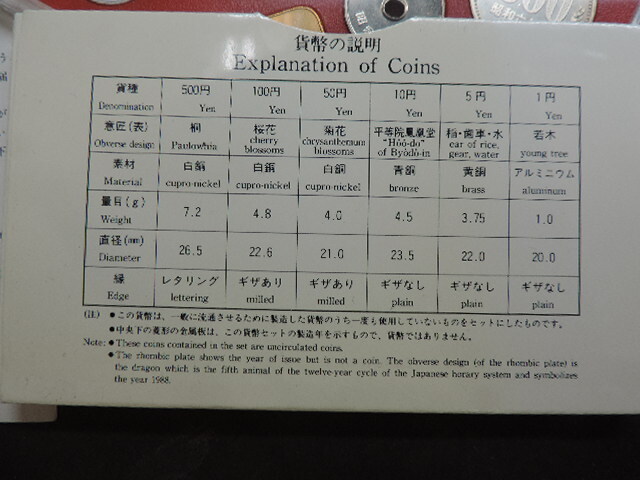 貨幣の説明
Explanation of Coins
貨種 500円 100円 50円 10円 5円 1円
Denomination Yen Yen Yen Yen Yen Yen
意匠(表) 桐 桜花 菊花 平等院鳳凰堂 稲・歯車・水 若木
Obverse design Paulowhia cherry blossoms chrysanthemum blossoms "Hōō-do" of Byōdō-in ear of rice, gear, water young tree
素材 白銅 白銅 白銅 青銅 黄銅 アルミニウム
Material cupro-nickel cupro-nickel cupro-nickel bronze brass aluminum
量目(g)
Weight 7.2 4.8 4.0 4.5 3.75 1.0
直径(mm)
Diameter 26.5 22.6 21.0 23.5 22.0 20.0
縁 レタリング ギザあり ギザあり ギザなし ギザなし ギザなし
Edge lettering milled milled plain plain plain
(注) ●この貨幣は、一般に流通させるために製造した貨幣のうち一度も使用していないものをセットにしたものです。
●中央下の菱形の金属板は、この貨幣セットの製造年を示すもので、貨幣ではありません。
Note: ●These coins contained in the set are uncirculated coins.
●The rhombic plate shows the year of issue but is not a coin. The obverse design (of the rhombic plate) is
the dragon which is the fifth animal of the twelve-year cycle of the Japanese horary system and symbolizes
the year 1988.